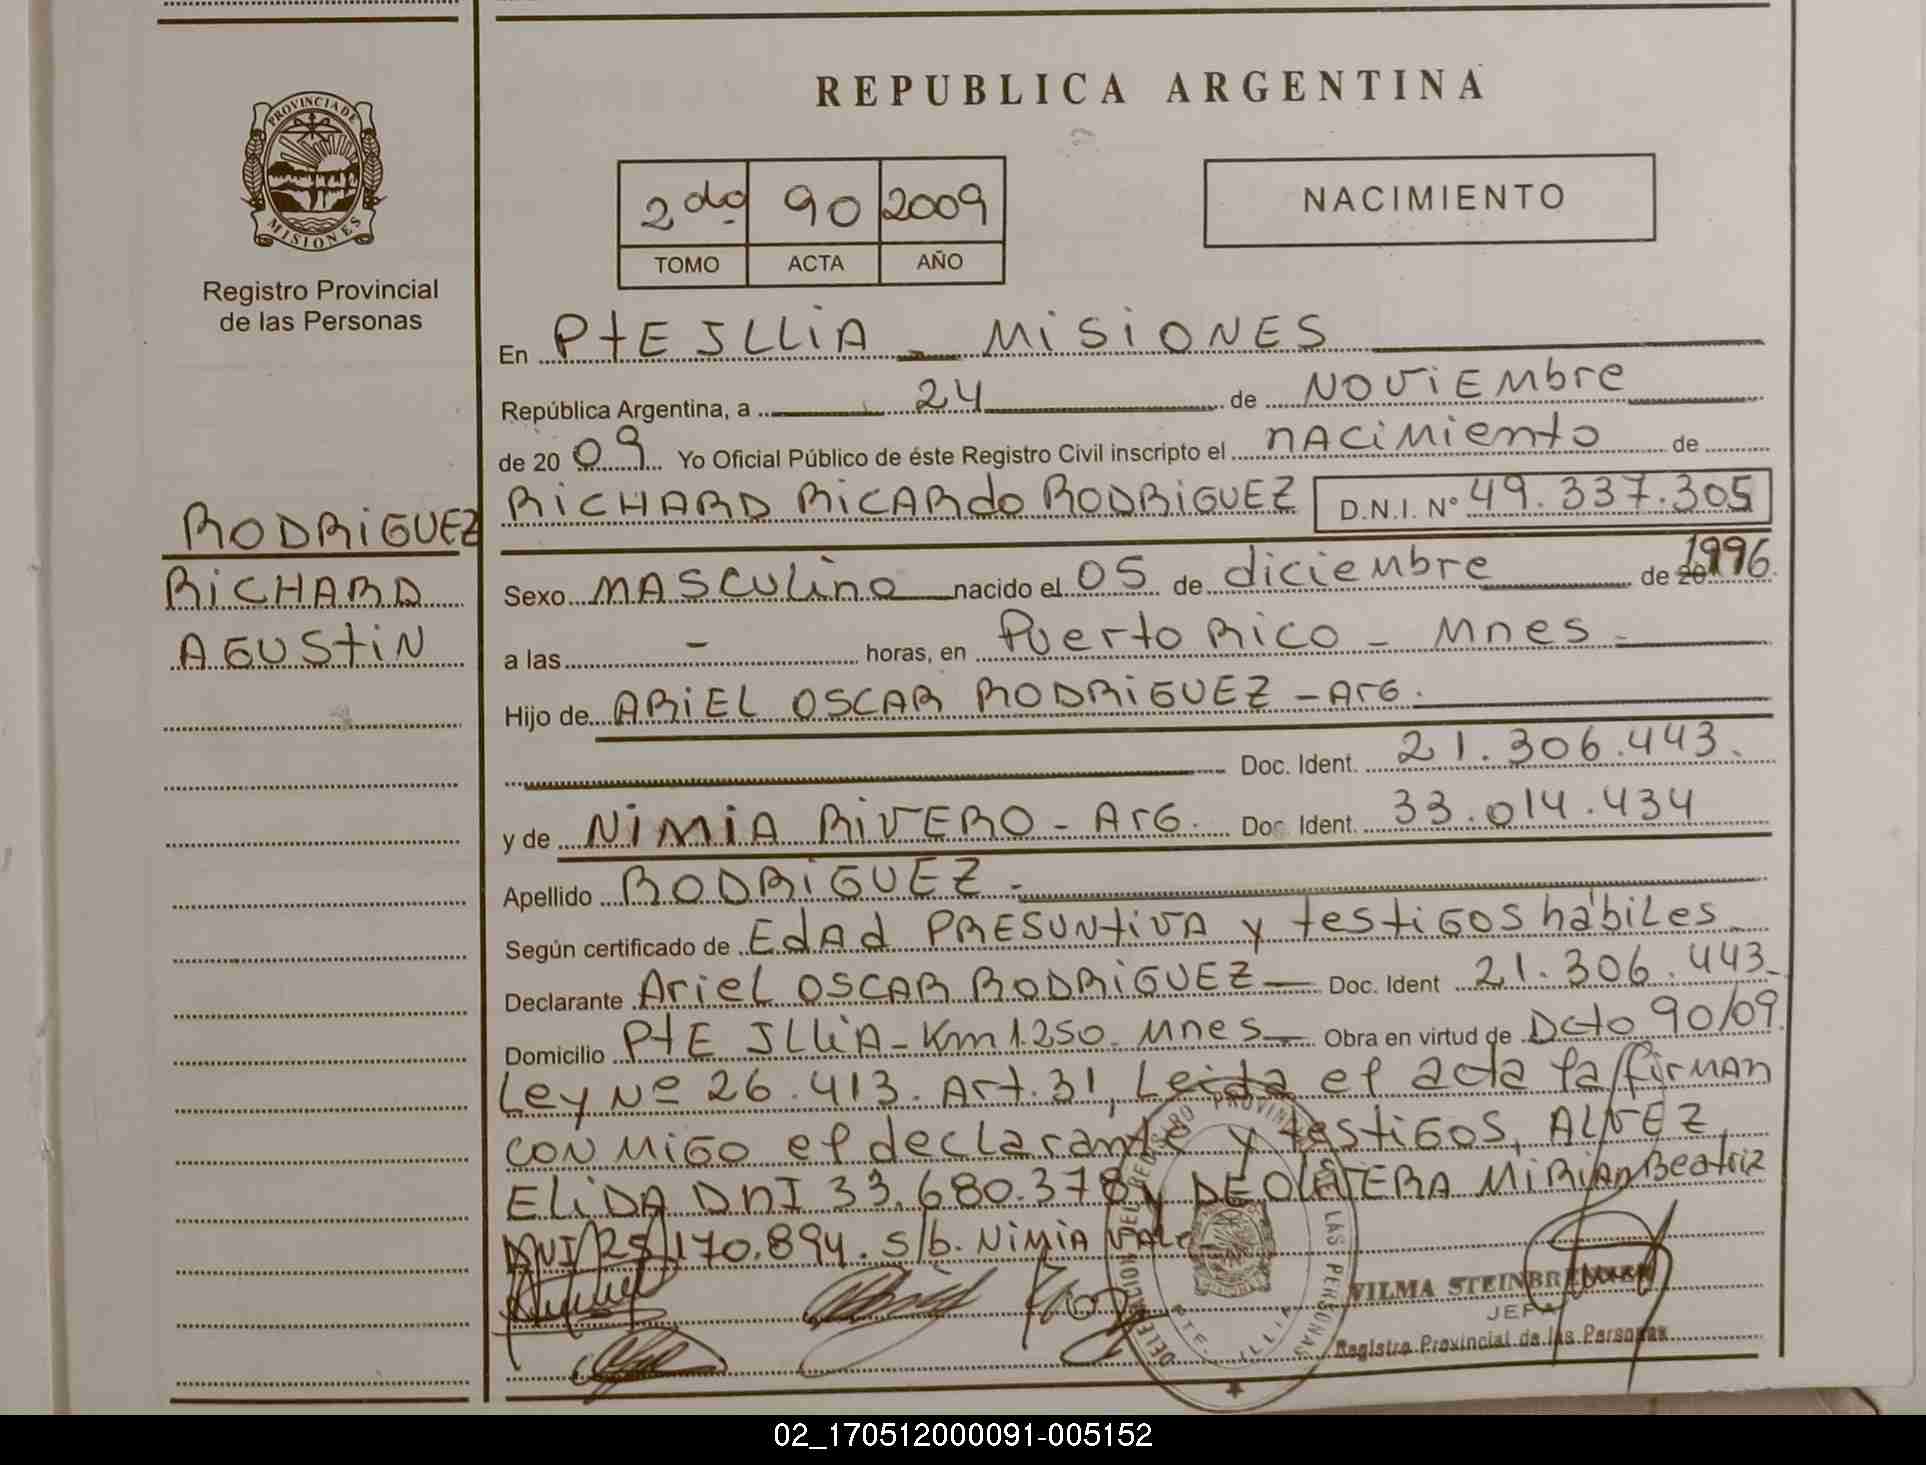 REPUBLICA ARGENTINA
PROVINCIA DE
MISIONES
Registro Provincial
de las Personas
2do 90 2009
TOMO ACTA AÑO
NACIMIENTO
En PtE ILLIA - MISIONES
República Argentina, a 24 de NOVIEMbre
de 2009 Yo Oficial Público de éste Registro Civil inscripto el nACiMiento de
RODRIGUEZ
RICHARD
AGUStiN
RICHARD RICARdo RODRIGUEZ D.N.I. N° 49.337.305
Sexo MASCULino nacido el 05 de diciembre de 20 1996
a las - horas, en Puerto Rico - Mnes -
Hijo de ARIEL OSCAR RODRIGUEZ - ArG.
Doc. Ident. 21.306.443.
y de NIMIA RIVERO - ArG. Doc. Ident. 33.014.434
Apellido RODRIGUEZ -
Según certificado de EdAd PRESUNtiVA y testiGOS hábiLes
Declarante ArieL OSCAR RODRIGUEZ - Doc. Ident 21.306.443-
Domicilio PtE ILLIA - Km 1.250. Mnes - Obra en virtud de Dcto 90/09
Ley Nº 26.413. Art. 31, Leida el acta la firMAN
CON MIGO el declarante y testiGOS, ALVEZ,
ELIDA DNI 33.680.378 y DEOLATERA MIRIAN Beatriz
DNI 25.170.894. s/b. NIMIA VALe
DELEGACION DEL REGISTRO PROVINCIAL LAS PERSONAS
PTE.
VILMA STEINBRENNER
JEFA
Registro Provincial de las Personas
02_170512000091-005152